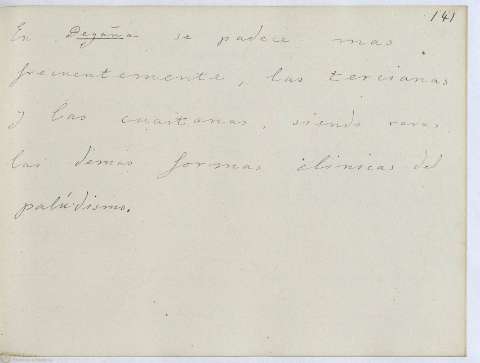 141
En Degaña se padece mas
frecuentemente, las tercianas
y las cuartanas, siendo raras
las demas formas clinicas del
palúdismo.